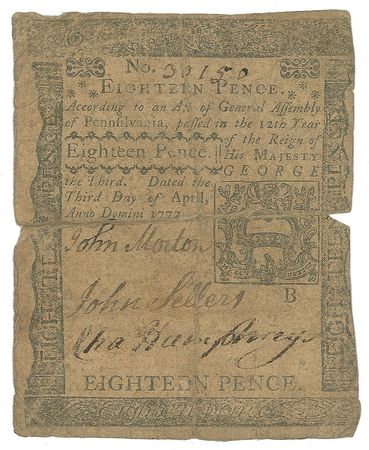 No. 30150
EIGHTEEN PENCE.
According to an Act of General Assembly
of Pennsylvania, passed in the 12th Year
of the Reign of
Eighteen Pence.
His MAJESTY
GEORGE
the Third. Dated the
Third Day of April,
Anno Domini 1772
John Morton
John Sellers
B
Cha Humphreys
EIGHTEEN PENCE.
EIGHTEEN PENCE
EIGHTEEN PENCE
Eighteen Pence